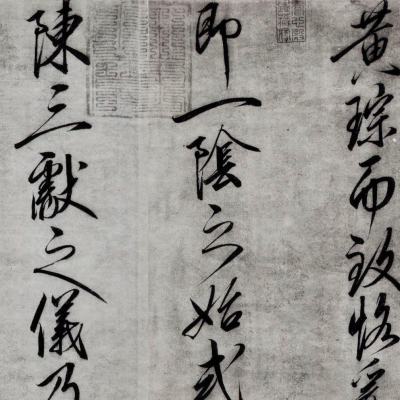 黄琮而致恪
即一陰之始式
陳三獻之儀乃